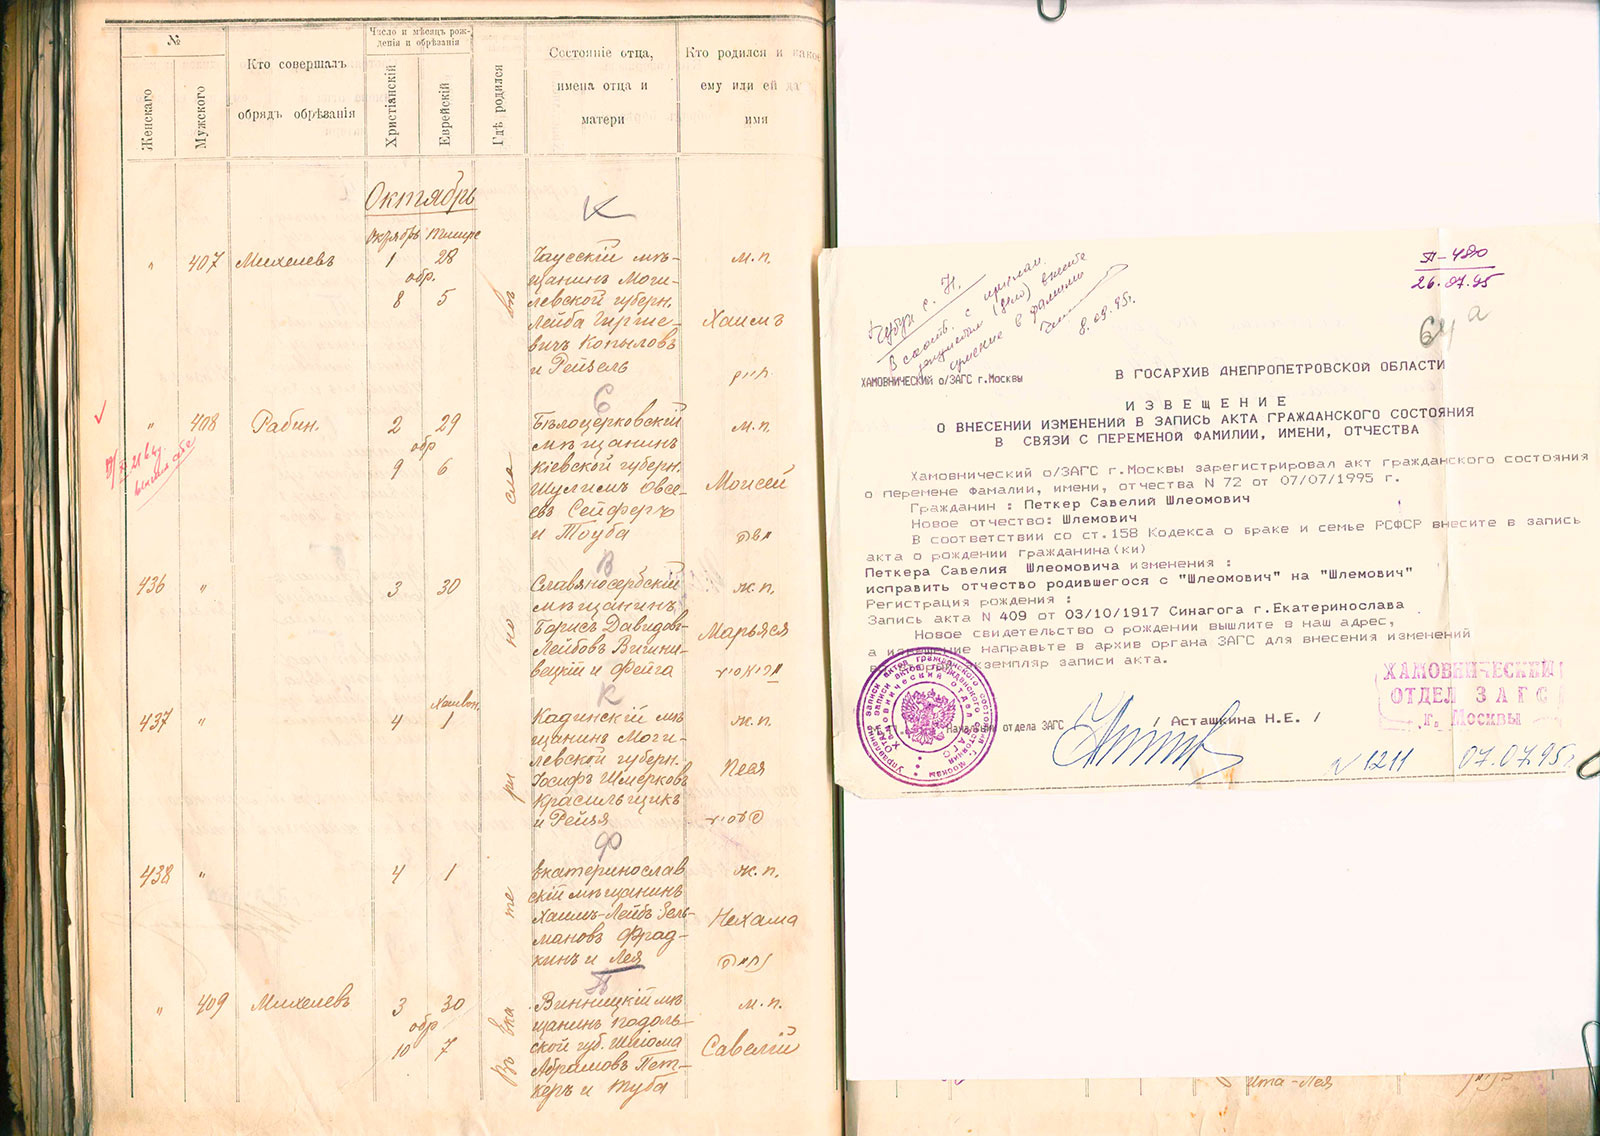 №
Женскаго
Мужского
Кто совершалъ
обрядъ обрѣзанія
Число и мѣсяцъ рож-
денія и обрѣзанія
Христіанскій
Еврейскій
Гдѣ родился
Состояніе отца,
имена отца и
матери
Кто родился и какое
ему или ей да
имя
Октябрь
К
Октябрь Тишре
" 407 Михелевъ 1 28
обр.
8 5
Чаусскій мѣ-
щанинъ Моги-
левской губерн.
Лейба Гирше-
вичъ Копыловъ
и Рейзель
м.п.
Хаимъ
חיים
С
" 408 Рабин. 2 29
обр
9 6
Бѣлоцерковскій
мѣщанинъ
Кіевской губерн.
Шулимъ Овсе-
евъ Сейферъ
и Тоуба
м.п.
Моисей
В
436 " 3 30
Славяносербскій
мѣщанинъ
Борисъ Давидовъ-
Лейбовъ Вишни-
вецкій и Фейга
ж.п.
Марьяся
К
Хешвон.
437 " 4 1
Кадинскій мѣ
щанинъ Моги-
левской губерн.
Іосифъ Шмерковъ
Красильщикъ
и Рейзя
ж.п.
Песя
Ф
438 " 4 1
Екатеринослав
скій мѣщанинъ
Хаимъ-Лейбъ Зель-
мановъ Фрад-
кинъ и Лея
ж.п.
Нехама
П
" 409 Михелевъ 3 30
обр
10 7
Винницкій мѣ
щанинъ Подоль-
ской губ. Шлома
Абрамовъ Пет-
керъ и Туба
м.п.
Савелій
Въ Ека те ри но сла вѣ
П-480
26.07.95
64а
Чубук с. Н.
В соотв. с прилаг.
документом (дело) внести
изменение в фамилию
8.09.95г.
ХАМОВНИЧЕСКИЙ о/ЗАГС г.Москвы
В ГОСАРХИВ ДНЕПРОПЕТРОВСКОЙ ОБЛАСТИ
ИЗВЕЩЕНИЕ
О ВНЕСЕНИИ ИЗМЕНЕНИЙ В ЗАПИСЬ АКТА ГРАЖДАНСКОГО СОСТОЯНИЯ
В СВЯЗИ С ПЕРЕМЕНОЙ ФАМИЛИИ, ИМЕНИ, ОТЧЕСТВА
Хамовнический о/ЗАГС г.Москвы зарегистрировал акт гражданского состояния
о перемене Фамалии, имени, отчества N 72 от 07/07/1995г.
Гражданин : Петкер Савелий Шлеомович
Новое отчество: Шлемович
В соответствии со ст.158 Кодекса о браке и семье РСФСР внесите в запись
акта о рождении гражданина(ки)
Петкера Савелия Шлеомовича изменения :
исправить отчество родившегося с "Шлеомович" на "Шлемович"
Регистрация рождения :
Запись акта N 409 от 03/10/1917 Синагога г.Екатеринослава
Новое свидетельство о рождении вышлите в наш адрес,
а извещение направьте в архив органа ЗАГС для внесения изменений
экземпляр записи акта.
Начальник отдела ЗАГС / Асташкина Н.Е. /
ХАМОВНИЧЕСКИЙ
ОТДЕЛ ЗАГС
г. Москвы
N 1211 07.07.95г
Ита-Лея